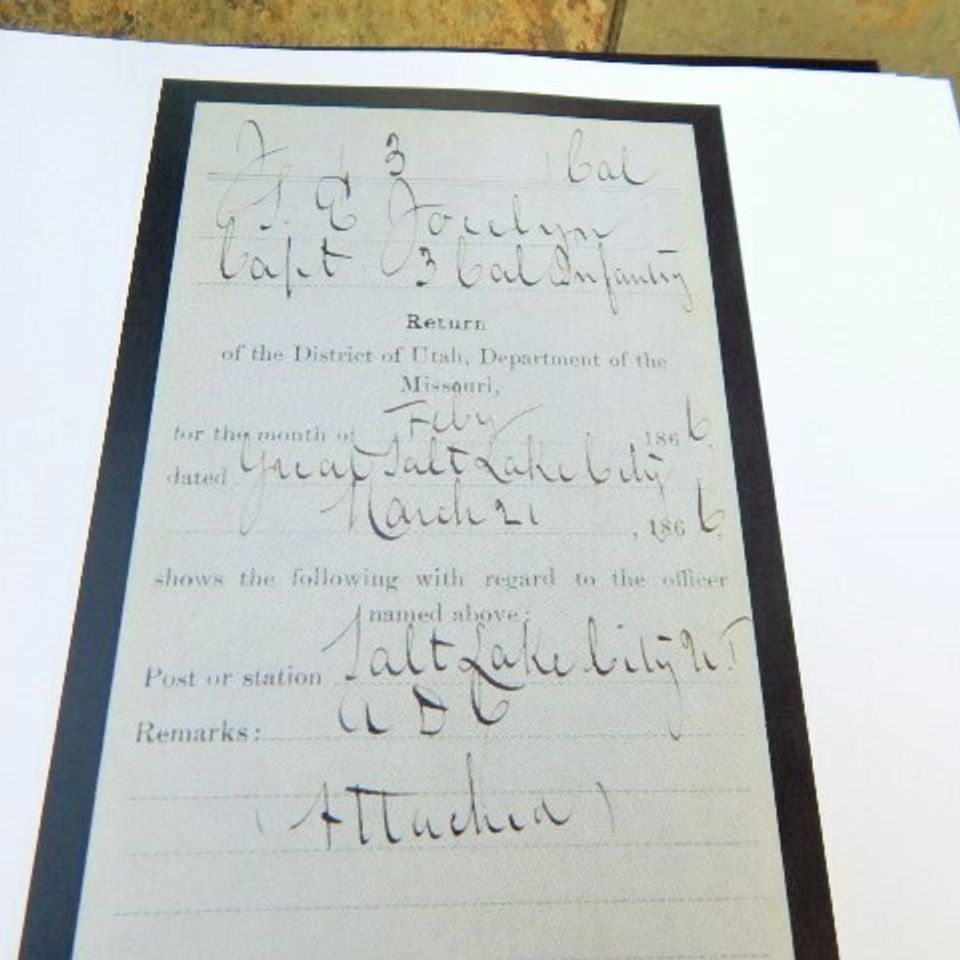 3 Cal
S. E Jocelyn
Capt 3 Cal Infantry
Return
of the District of Utah, Department of the
Missouri,
for the month of Feby, 1866.
dated Great Salt Lake City
March 21, 1866,
shows the following with regard to the officer
named above:
Post or station Salt Lake City U.T
Remarks: A D C
(Attached)